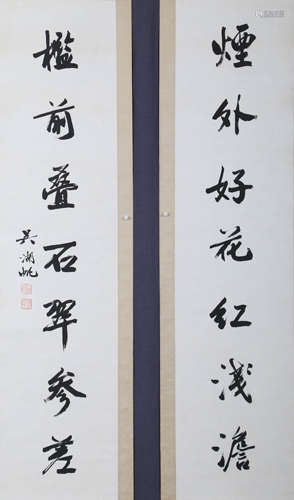 煙外好花紅淺澹
檻前叠石翠參差
吳湖帆